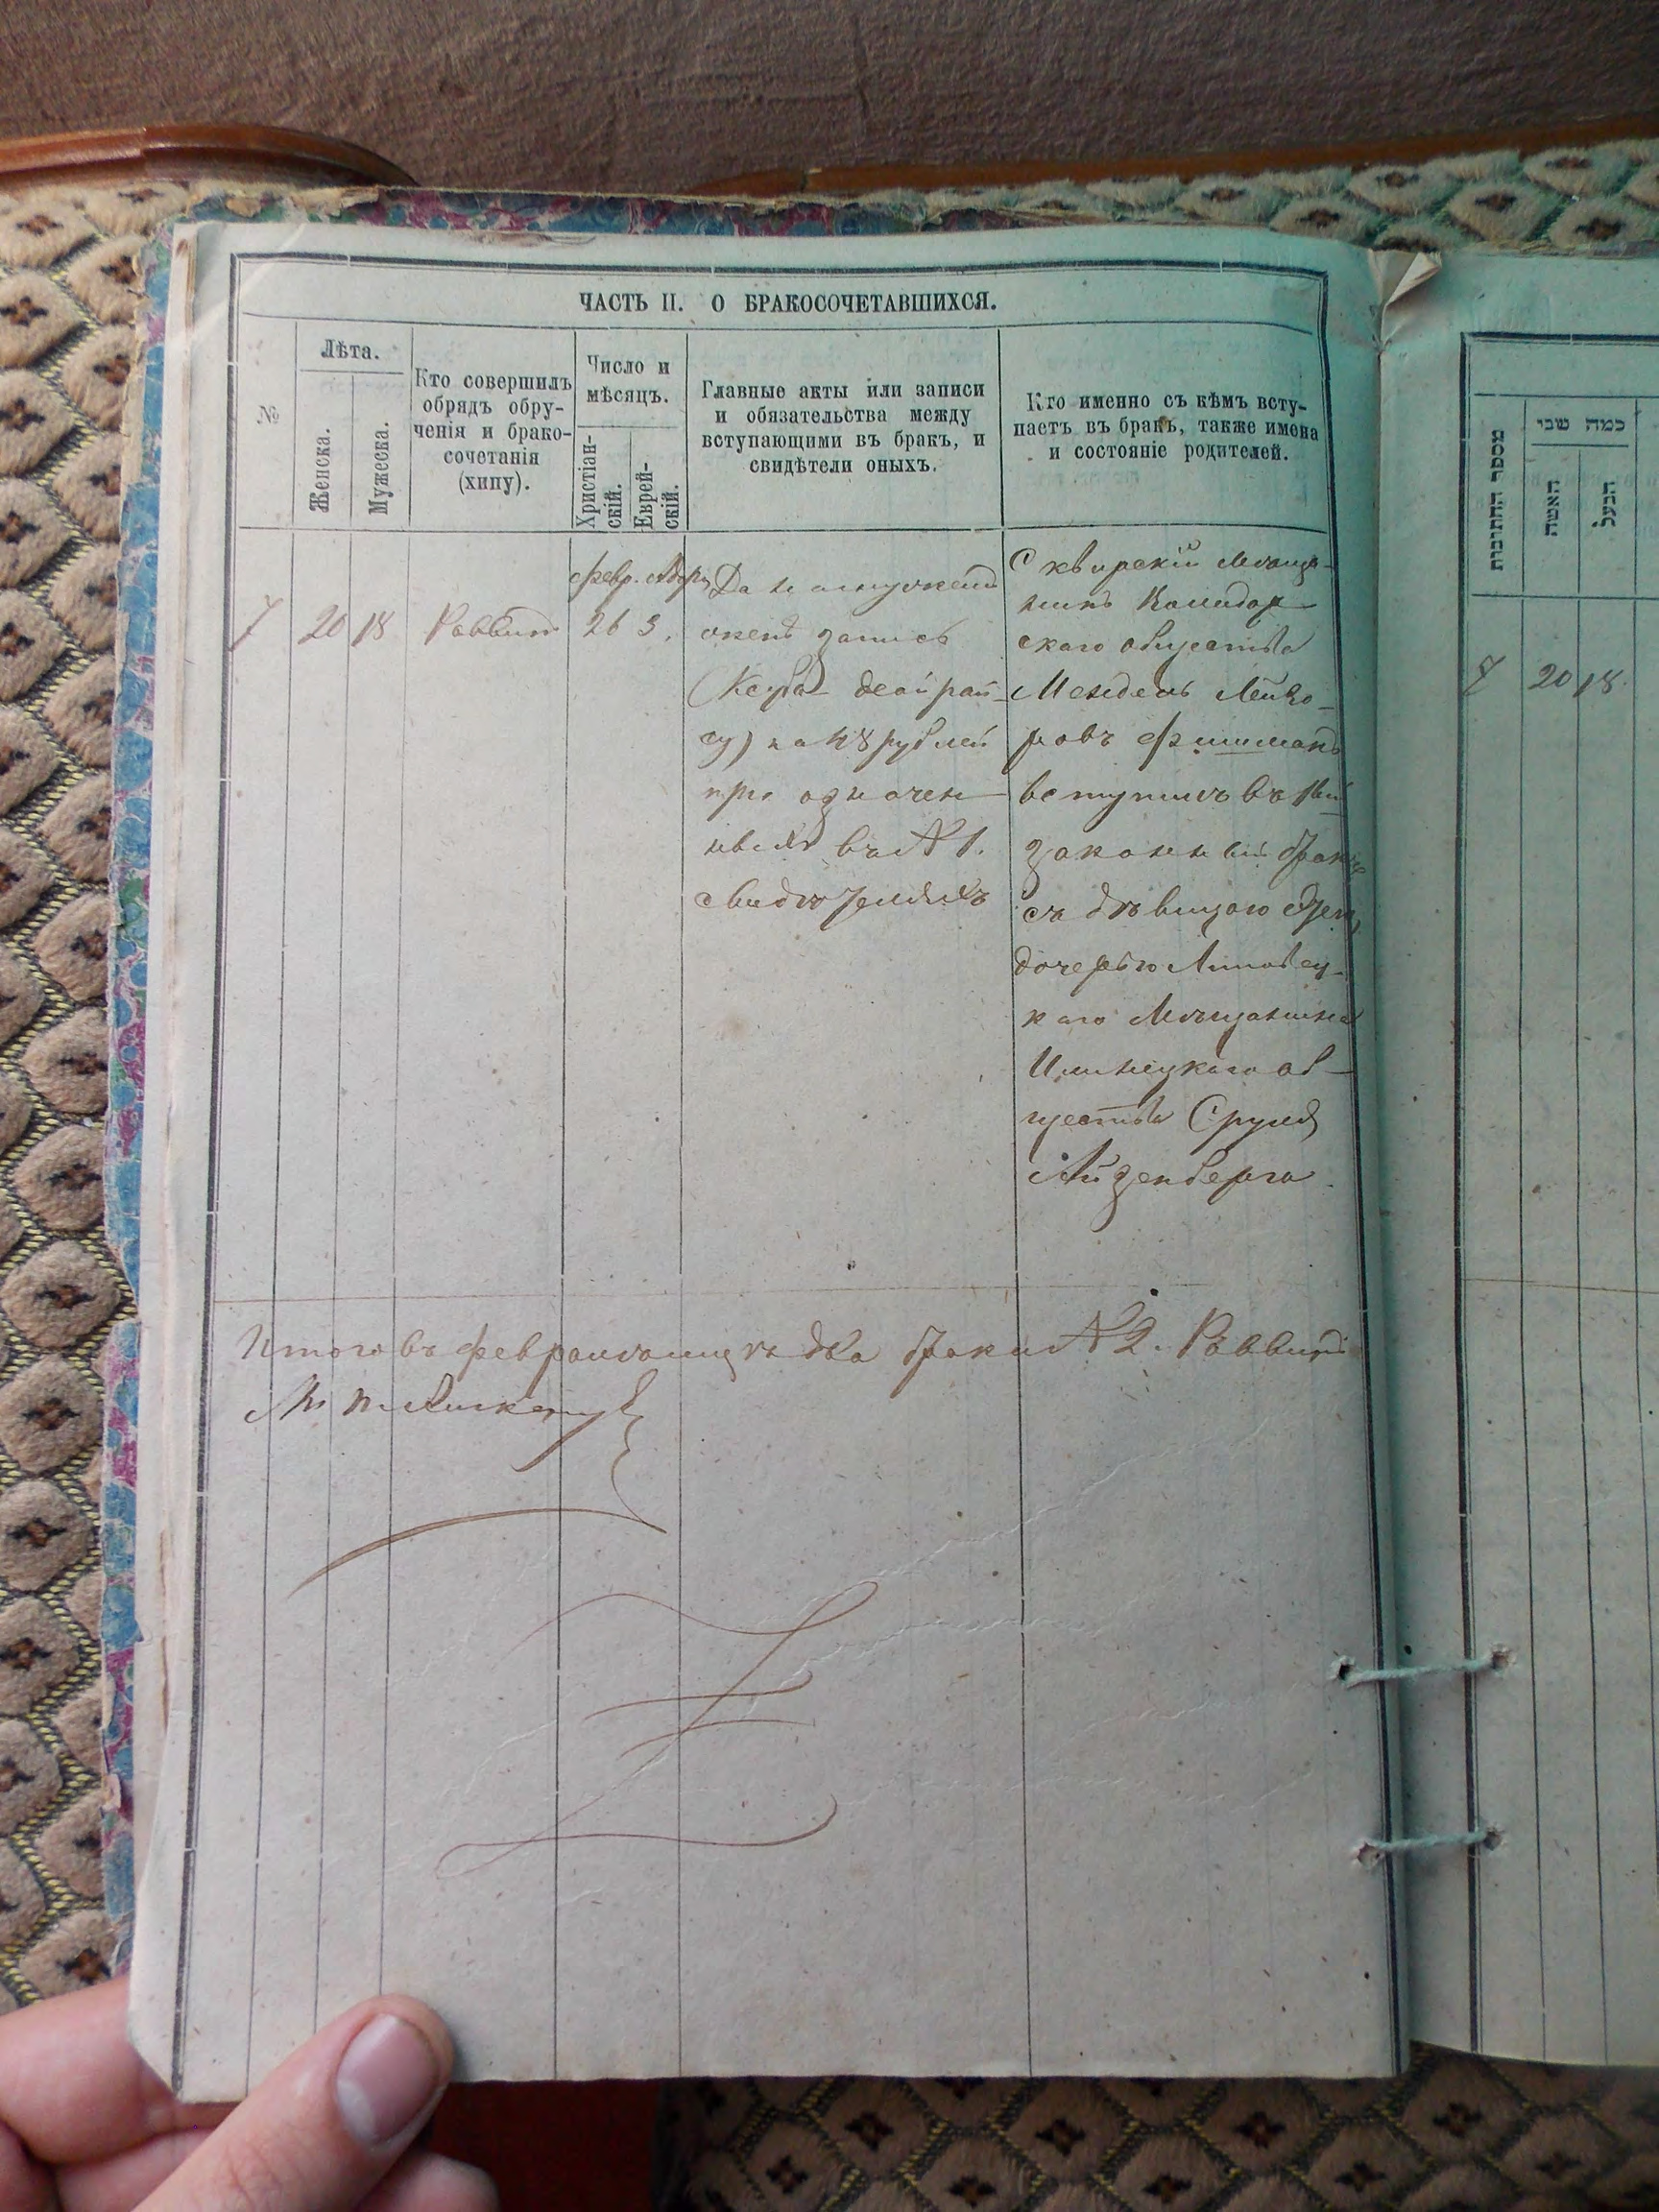 ЧАСТЬ II. О БРАКОСОЧЕТАВШИХСЯ.
№
Лѣта.
Женска.
Мужеска.
Кто совершилъ
обрядъ обру-
ченія и брако-
сочетанія
(хипу).
Число и
мѣсяцъ.
Христіан-
скій.
Еврей-
скій.
Главные акты или записи
и обязательства между
вступающими въ бракъ, и
свидѣтели оныхъ.
Кто именно съ кѣмъ всту-
паетъ въ бракъ, также имена
и состояніе родителей.
7
20
18
Раввинъ
февр.
26
3.
Дана
запись
на 48 рублей
при означен
ныхъ въ № 1.
свидѣтеляхъ
Сквирскій мѣща-
нинъ
скаго общества
Мендель Лейзо-
ровъ Фишманъ
вступилъ въ 1й
законный бракъ
съ дѣвицою
дочерью Липовец-
каго Мѣщанина
Илинецкаго об-
щества Сруля
Айзенберга
Итого въ февралѣ мцѣ два брака № 2. Раввинъ
מספר החתונות
כמה שני
האשה
הבעל
7
20
18.